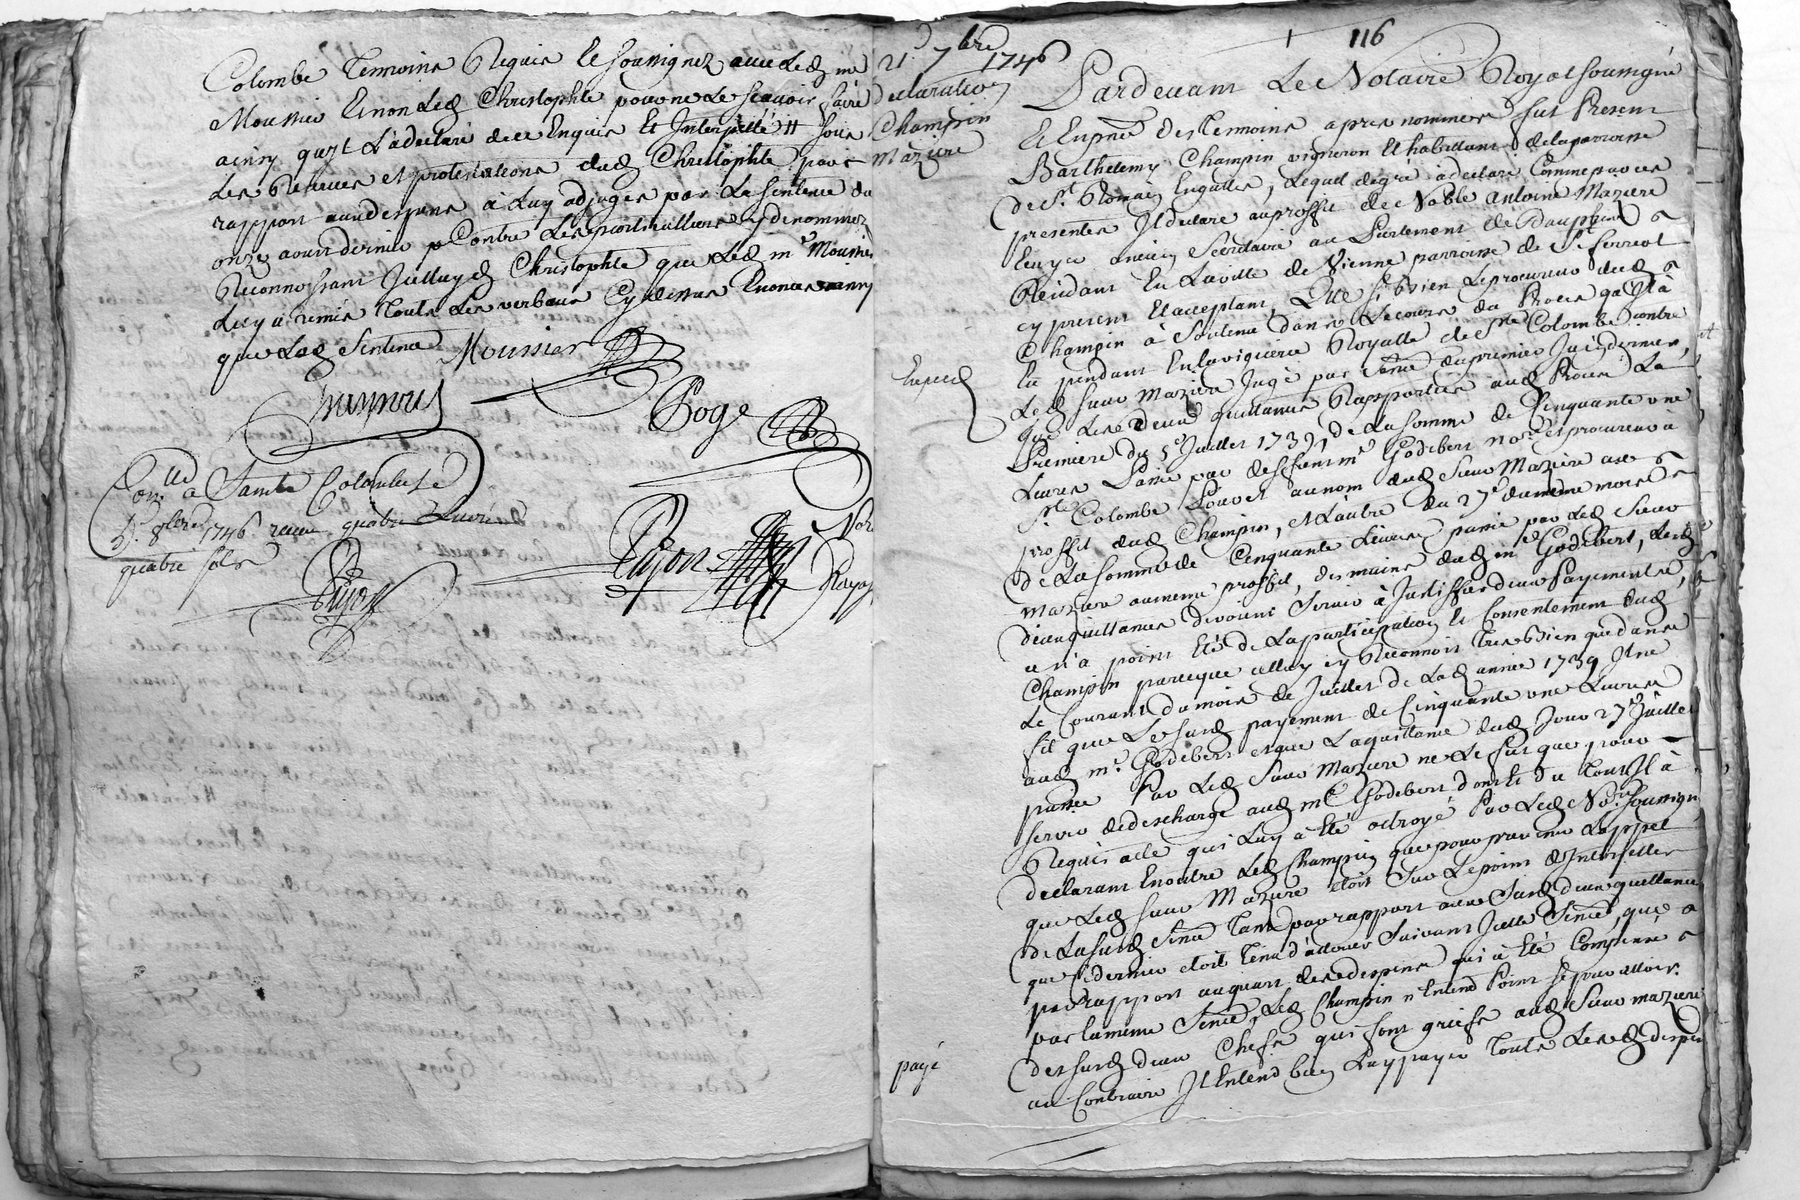 Colombe Temoins Requis le soussignez avec led me
Moussier Et non led Christophle pour ne le scavoir faire
ainsy quil l'a declaré de ce Enquis Et Interpellé sous
les Reserves et protestations dud Christophle pour
rapport aux depens à Luy adjugés par La sentence du
onze aoust dernier Contre les particulliers y denommez
Reconnoissant Icelluy d Christophle que led me Moussier
Luy a remis Touts Les verbaux Cy dessus Enoncés ainsy
que lad Sentence Moussier
Poge
Conllé a Sainte Colombe le
5e 8bre 1746 receu quatre Livres
quatre sols
Pujon
Pujon Nore
Royal
21e 7bre 1746
declaration
Champin
Maziere
Exped
payé
116
Pardevant Le Notaire Royal soussigné
Et En pnce des Temoins apres nommés fut Present
Barthelemy Champin vigneron Et habittant de la parroisse
de St Romain En galles, Lequel de gré a declaré Comme par ces
presentes Il declare au proffit de Noble Antoine Maziere
Ecuyer ancien Secretaire au Parlement de Dauphiné
Residant En La ville de Vienne parroisse de St ferreol
cy present Et acceptant, Que sy bien Le procureur dud
Champin à Soutenu dans le cours du Proces qu'il à
Eu pendant En la viguerie Royalle de Ste Colombe contre
Led sieur Maziere Jugé par Sence du premier Juin dernier,
que Les deux quittances Rapportées aud Proces La
Premiere du 5e Juillet 1739, de La somme de Cinquante une
Livres Passée par deffunt me Godebert nore et procureur à
Ste Colombe Pour et au nom dud Sieur Maziere au
proffit dud Champin, et L'autre du 27e du même mois
de La somme de Cinquante Livres passée par Led Sieur
Maziere au meme proffit, des mains dud me Godebert, Lesd
deux quittances devoient Servir à Justiffier deux Payements,
ce n'a point Eté de La participation Et Consentement dud
Champin parce que celluy cy Reconnoit Tres bien que dans
Le Courant du mois de Juillet de Lad année 1739 Il ne
fit que Le susd payement de Cinquante une Livres
aud me Godebert et que La quittance dud Jour 27e Juillet
passée Par Led Sieur Maziere ne Le fut que pour
servir de descharge aud me Godebert dont et du Tout Il à
Requis acte qui Luy a Eté octroyé Par Led Nore Soussigné
declarant En outre Led Champin que pour prevenir L'appel
que Led sieur Maziere etoit Sur Le point d'Interjetter
de La susd Sence Tant par rapport aux Susd deux quittances
que ce dernier etoit Tenu d'allouer Suivant Icelle Sence, que
par rapport au quart des depens qui à Eté Compensé
par la meme Sence, Led Champin n'Entend Point se prevalloir
des susd deux Chefs qui font griefs aud Sieur Maziere
au Contraire Il Entend bien Luy payer Touts Les d depens